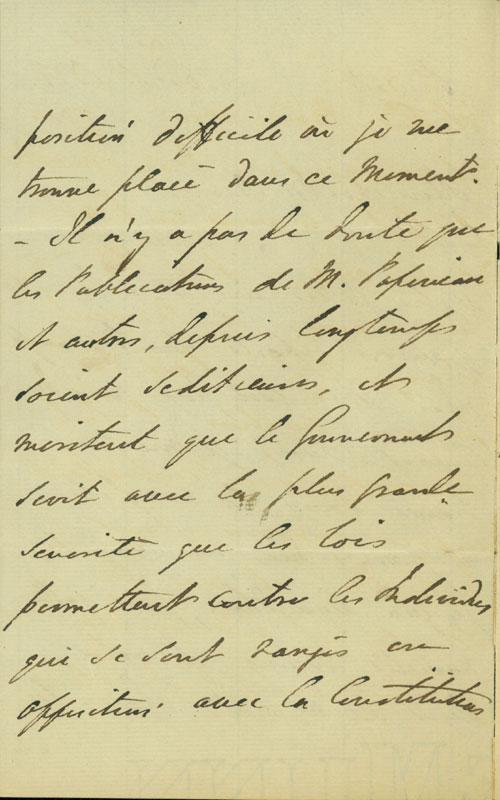 position difficile où je me
trouve placé dans ce Moment.
- Il n'y a pas de doute que
les Publications de M. Papineau
et autres, depuis longtemps
soient seditieuses, et
meritent que le Gouvernement
sevit avec la plus grande
severité que les lois
permettent contre les Individus
qui se sont rangés en
opposition avec la Constitution